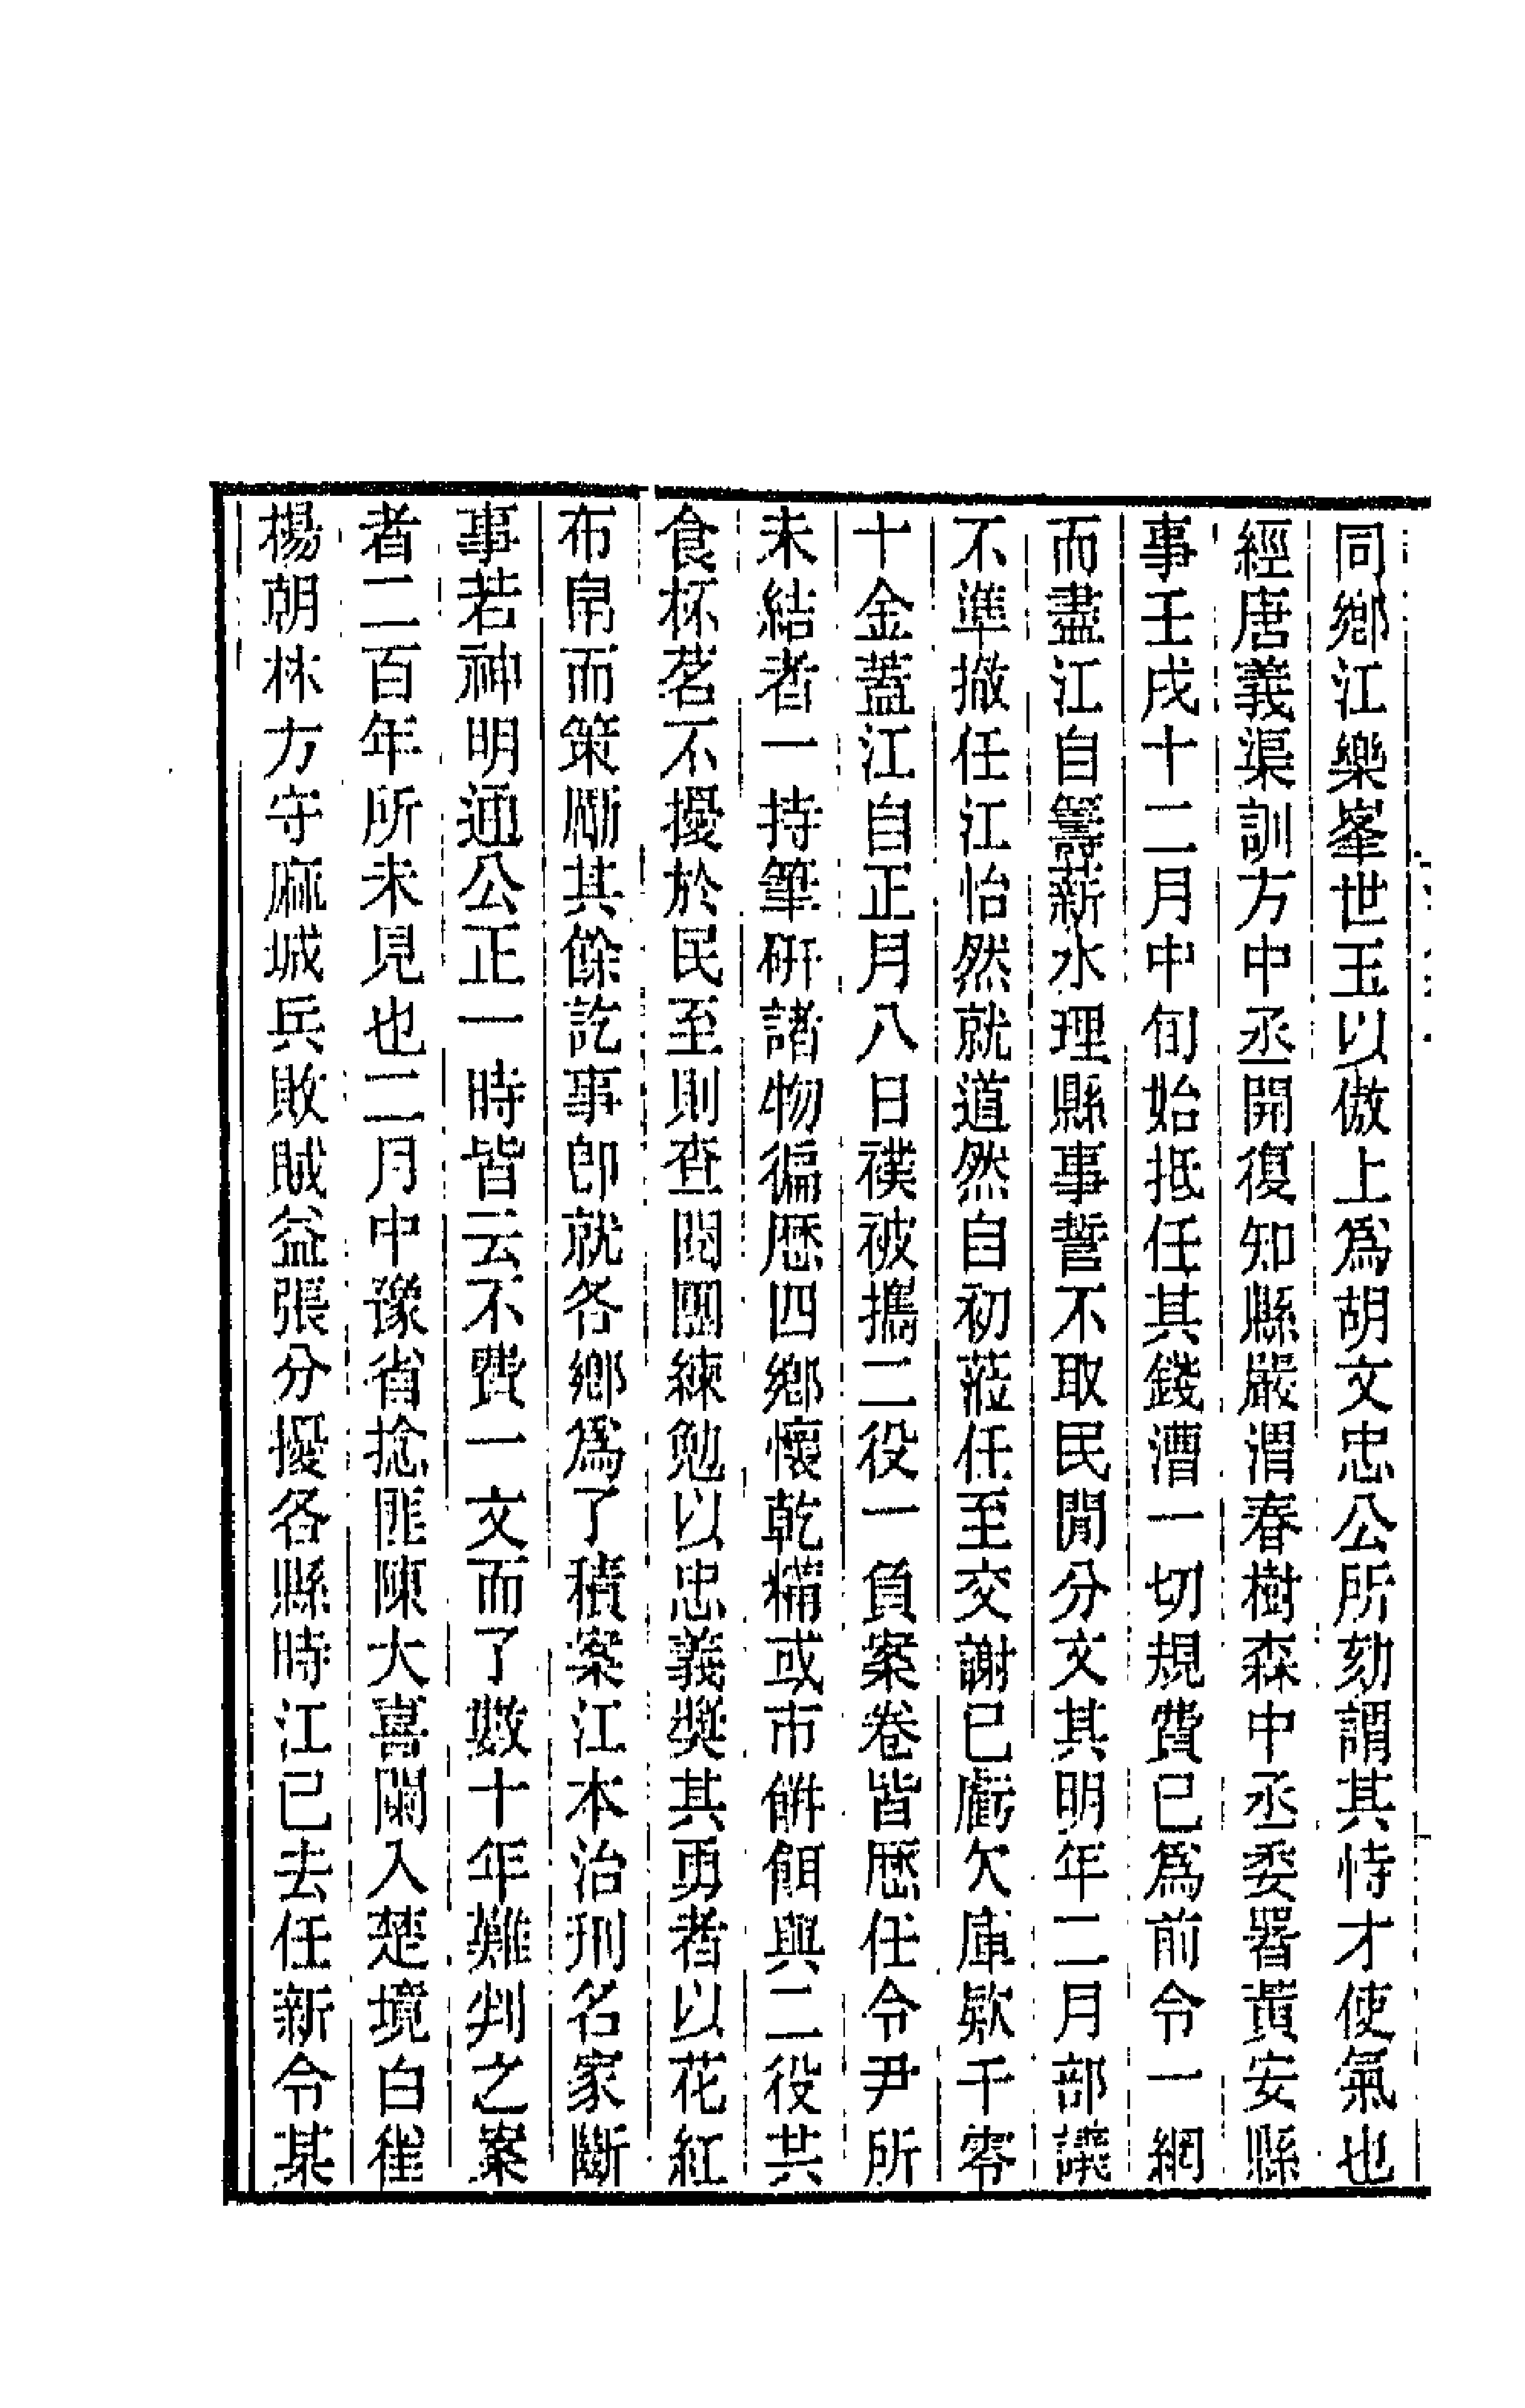 同鄉江樂峯世玉以傲上爲胡文忠公所劾謂其恃才使氣也
經唐義渠訓方中丞開復知縣嚴渭春樹森中丞委署黃安縣
事壬戌十二月中旬始抵任其錢漕一切規費已爲前令一網
而盡江自籌薪水理縣事誓不取民閒分文其明年二月部議
不準撤任江怡然就道然自初蒞任至交謝已虧欠庫款千零
十金蓋江自正月八日襆被攜二役一負案卷皆歷任令尹所
未結者一持筆硏諸物徧歷四鄉懷乾糒或市餅餌與二役共
食杯茗不擾於民至則查閱團練勉以忠義獎其勇者以花紅
布帛而策勵其餘訖事卽就各鄉爲了積案江本治刑名家斷
事若神明通公正一時皆云不費一文而了數十年難判之案
者二百年所未見也二月中豫省捻匪陳大喜闌入楚境白崔
楊朝林方守麻城兵敗賊益張分擾各縣時江已去任新令某